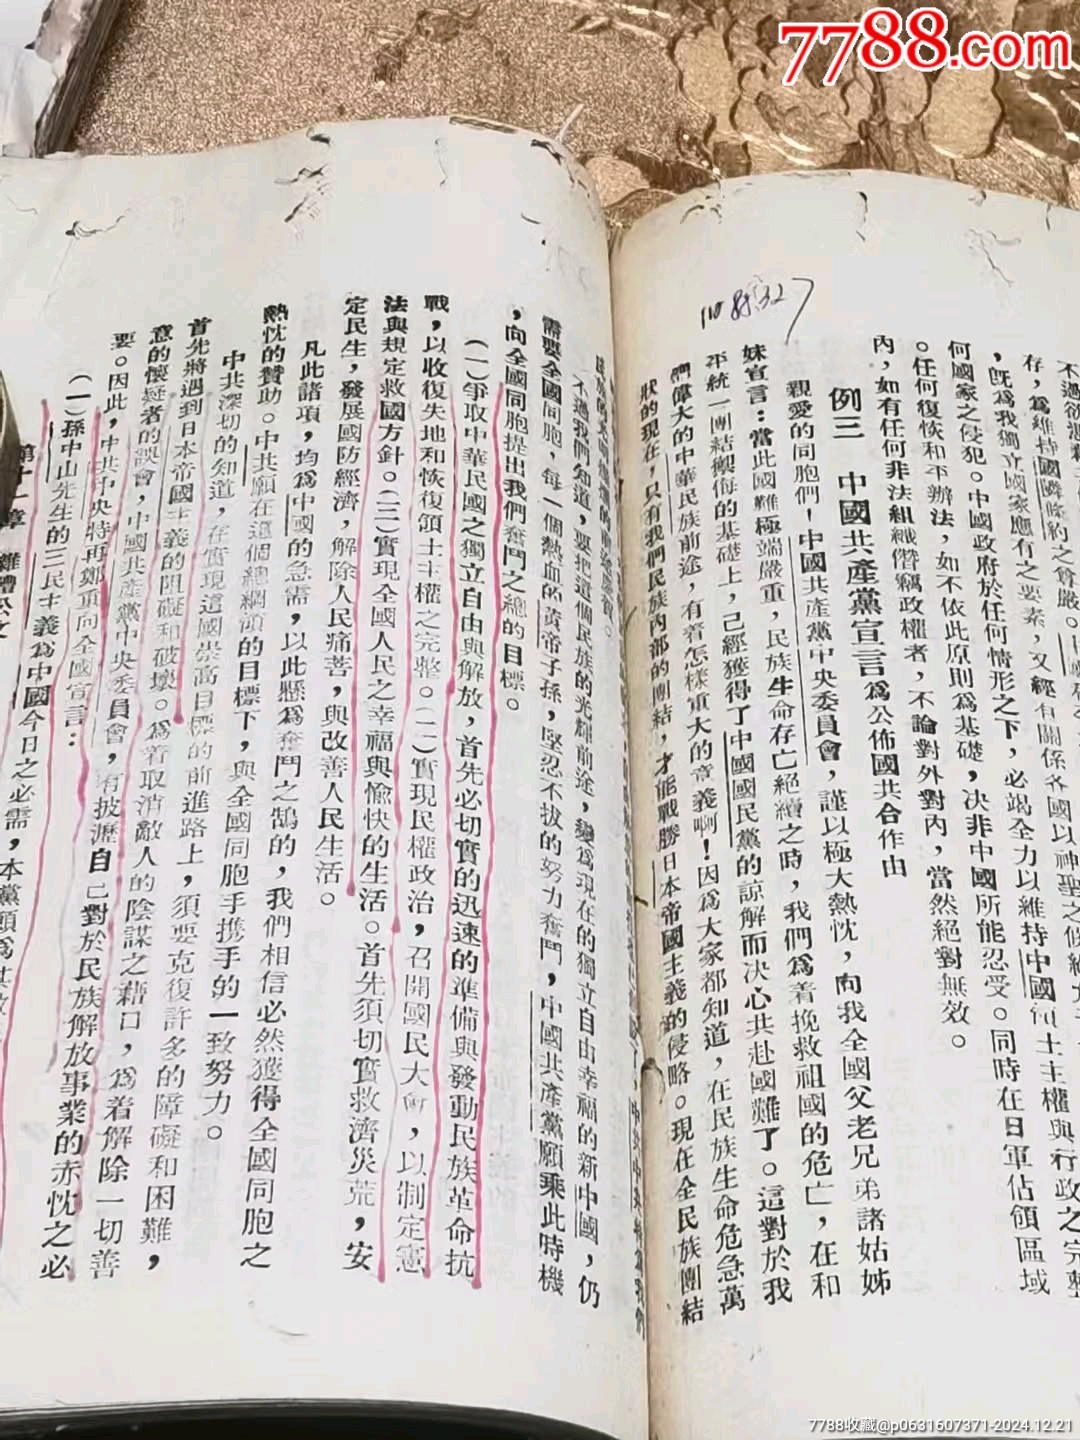 7788.com
不過欲憑
存，爲維持國際條約之尊嚴。
，既爲我獨立國家應有之要素，又經有關係各國以神聖之條約
何國家之侵犯。中國政府於任何情形之下，必竭全力以維持中國領土主權與行政之完整
。任何復恢和平辦法，如不依此原則爲基礎，决非中國所能忍受。同時在日軍佔領區域
內，如有任何非法組織僭竊政權者，不論對外對內，當然絕對無效。
例三　中國共產黨宣言爲公佈國共合作由
親愛的同胞們！中國共產黨中央委員會，謹以極大熱忱，向我全國父老兄弟諸姑姊
妹宣言：當此國難極端嚴重，民族生命存亡絕續之時，我們爲着挽救祖國的危亡，在和
平統一團結禦侮的基礎上，已經獲得了中國國民黨的諒解而决心共赴國難了。這對於我
們偉大的中華民族前途，有着怎樣重大的意義啊！因爲大家都知道，在民族生命危急萬
狀的現在，只有我們民族內部的團結，才能戰勝日本帝國主義的侵略。現在全民族團結
不過我們知道，要把這個民族的光輝前途，變爲現在的獨立自由幸福的新中國，仍
需要全國同胞，每一個熱血的黃帝子孫，堅忍不拔的努力奮鬥，中國共產黨願乘此時機
，向全國同胞提出我們奮鬥之總的目標。
（一）爭取中華民國之獨立自由與解放，首先必切實的迅速的準備與發動民族革命抗
戰，以收復失地和恢復領土主權之完整。（二）實現民權政治，召開國民大會，以制定憲
法與規定救國方針。（三）實現全國人民之幸福與愉快的生活。首先須切實救濟災荒，安
定民生，發展國防經濟，解除人民痛苦，與改善人民生活。
凡此諸項，均爲中國的急需，以此懸爲奮鬥之鵠的，我們相信必然獲得全國同胞之
熱忱的贊助。中共願在這個總綱領的目標下，與全國同胞手携手的一致努力。
中共深切的知道，在實現這國崇高目標的前進路上，須要克復許多的障礙和困難，
首先將遇到日本帝國主義的阻礙和破壞。爲着取消敵人的陰謀之藉口，爲着解除一切善
意的懷疑者的誤會，中國共產黨中央委員會，有披瀝自己對於民族解放事業的赤忱之必
要。因此，中共中央特再鄭重向全國宣言：
（一）孫中山先生的三民主義爲中國今日之必需，本黨願爲其
第十一章　雜體公文
7788收藏@p0631607371-2024.12.21